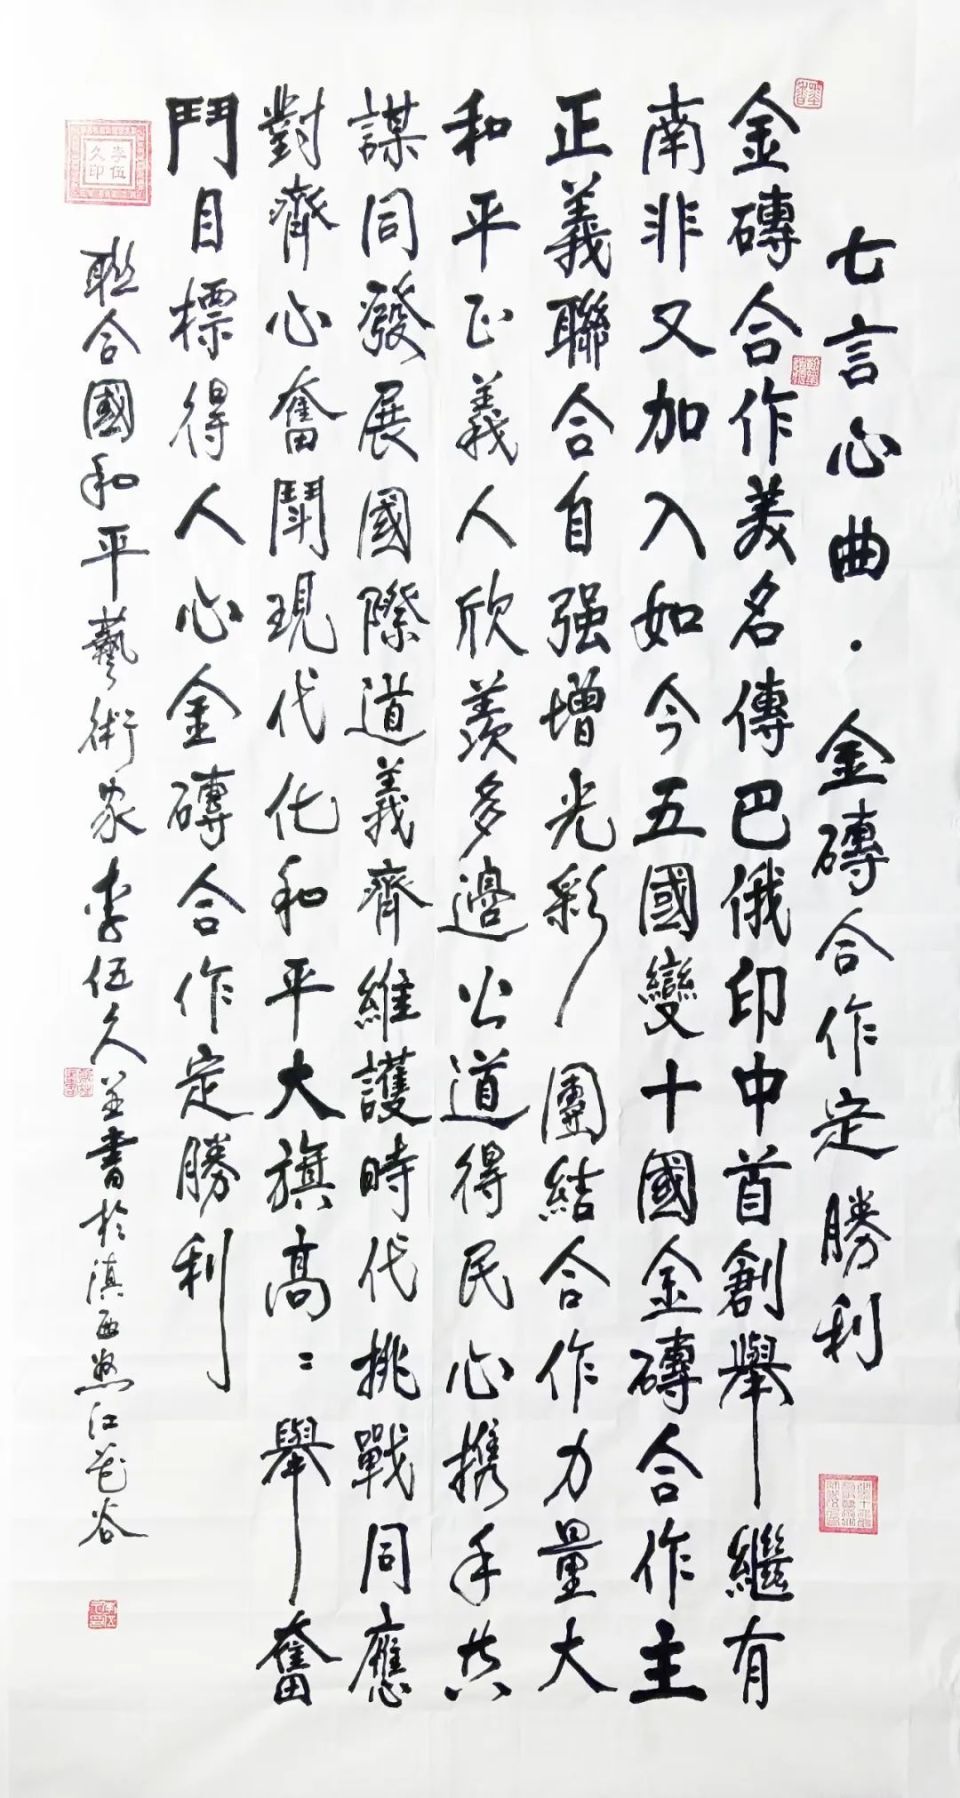 七言心曲·金磚合作定勝利
金磚合作美名傳巴俄印中首創舉繼有
南非又加入如今五國變十國金磚合作主
正義聯合自强增光彩團結合作力量大
和平正義人欣羨多邊公道得民心携手共
謀同發展國際道義齊維護時代挑戰同應
對齊心奮鬭現代化和平大旗高〻舉奮
鬥目標得人心金磚合作定勝利
聯合國和平藝術家李伍久並書於滇西怒江花谷
李伍久印